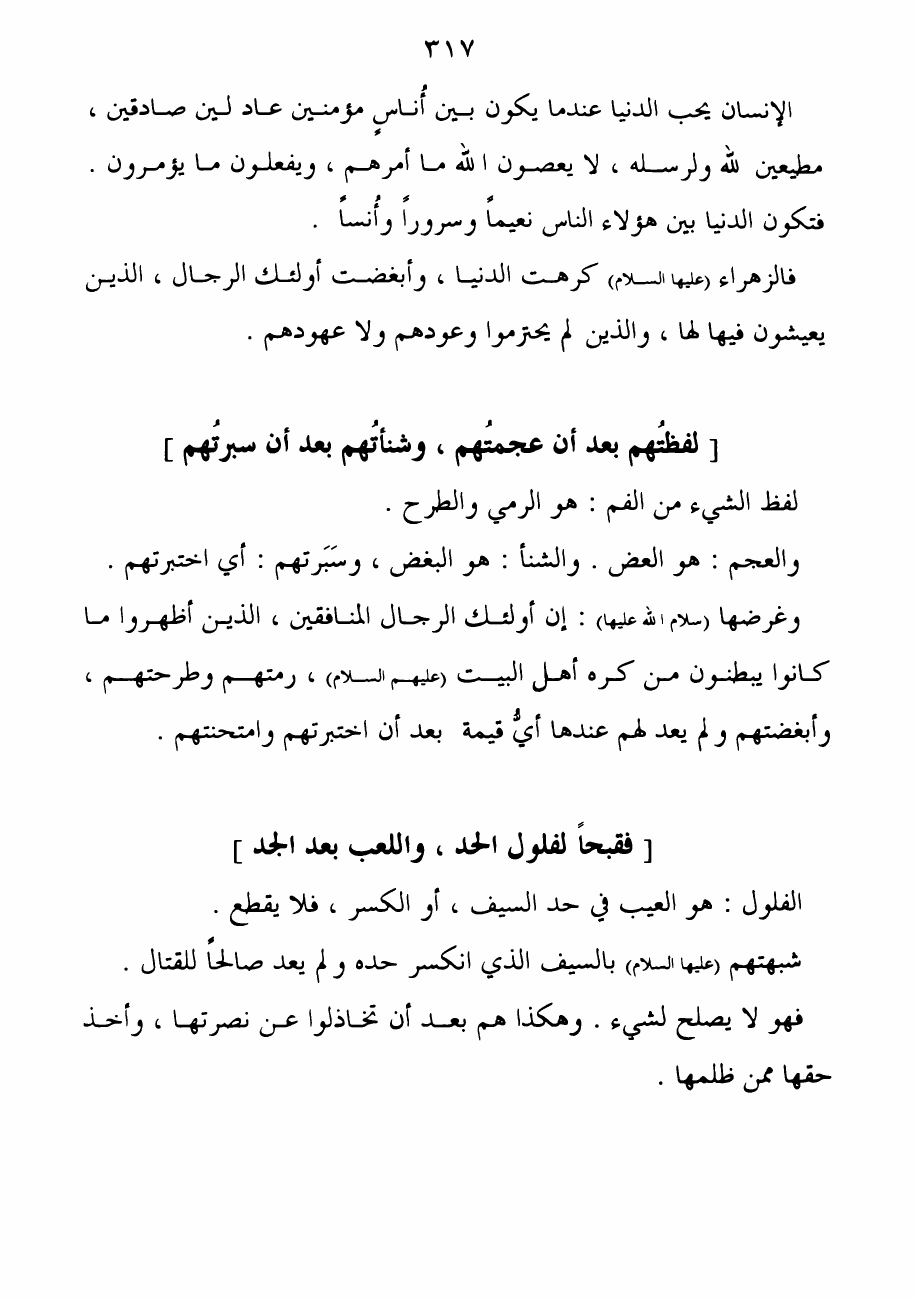 ٣١٧
الإنسان يحب الدنيا عندما يكون بين أُناسٍ مؤمنين عاد لين صادقين ،
مطيعين لله ولرسله ، لا يعصون الله ما أمرهم ، ويفعلون ما يؤمرون .
فتكون الدنيا بين هؤلاء الناس نعيماً وسروراً وأُنساً .
فالزهراء (عليها السلام) كرهت الدنيا ، وأبغضت أولئك الرجال ، الذين
يعيشون فيها لها ، والذين لم يحترموا وعودهم ولا عهودهم .
[ لفظتُهم بعد أن عجمتُهم ، وشنأتُهم بعد أن سبرتُهم ]
لفظ الشيء من الفم : هو الرمي والطرح .
والعجم : هو العض . والشنأ : هو البغض ، وسَبَرتهم : أي اختبرتهم .
وغرضها (سلام الله عليها) : إن أولئك الرجال المنافقين ، الذين أظهروا ما
كانوا يبطنون من كره أهل البيت (عليهم السلام) ، رمتهم وطرحتهم ،
وأبغضتهم ولم يعد لهم عندها أيُّ قيمة بعد أن اختبرتهم وامتحنتهم .
[ فقبحاً لفلول الحد ، واللعب بعد الجد ]
الفلول : هو العيب في حد السيف ، أو الكسر ، فلا يقطع .
شبهتهم (عليها السلام) بالسيف الذي انكسر حده ولم يعد صالحاً للقتال .
فهو لا يصلح لشيء . وهكذا هم بعد أن تخاذلوا عن نصرتها ، وأخذ
حقها ممن ظلمها .